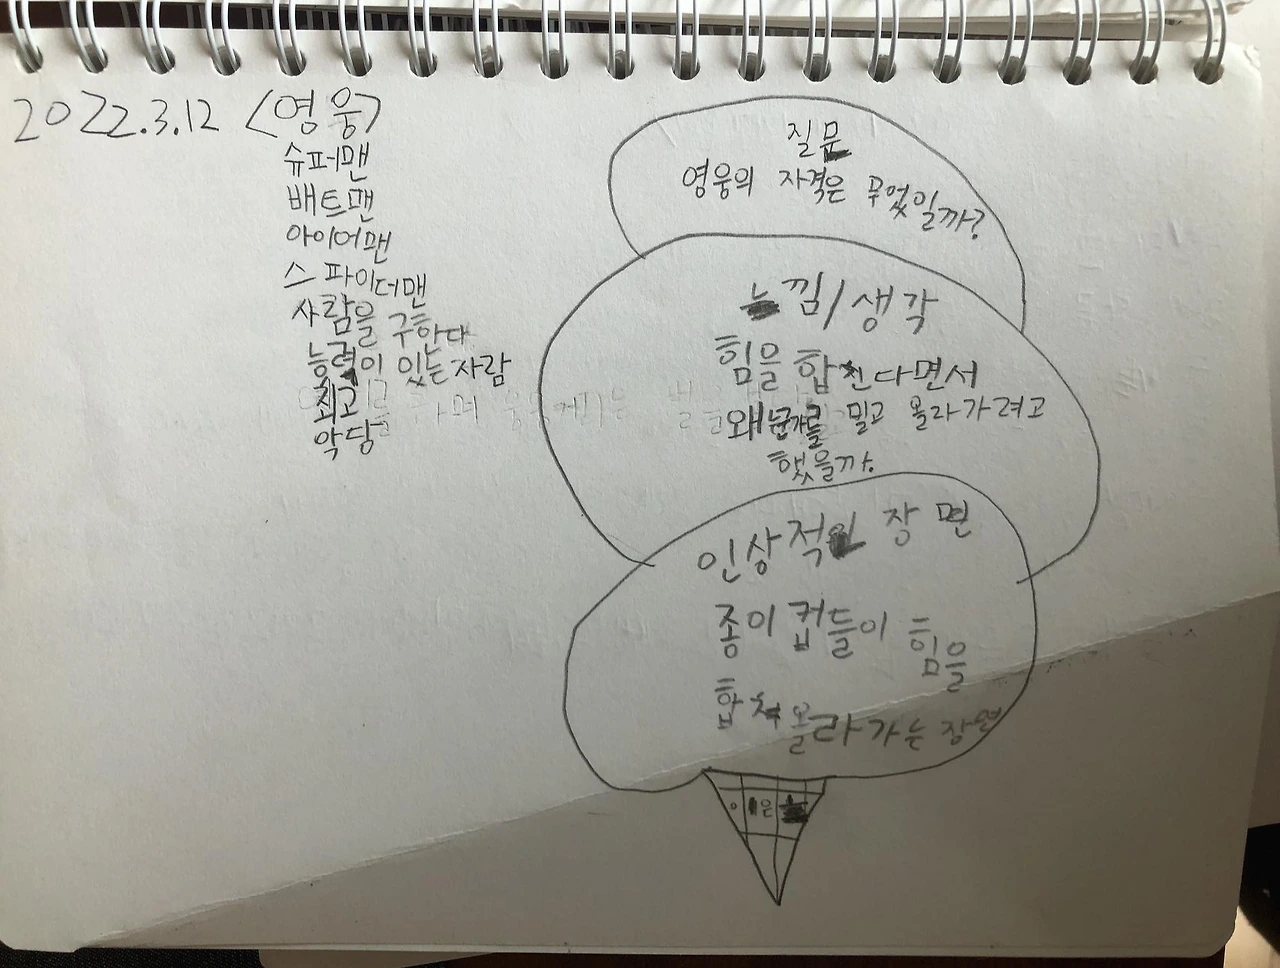 2022.3.12 <영웅>
슈퍼맨
배트맨
아이어맨
스파이더맨
사람을 구한다
능력이 있는 사람
최고
악당
질문
영웅의 자격은 무엇일까?
느낌/생각
힘을 합친다면서
왜 누군가를 밀고 올라가려고
했을까.
인상적인 장면
종이 컵들이 힘을
합쳐 올라가는 장면